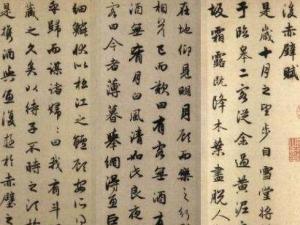 後赤壁賦
是歲十月之望步自雪堂將
于臨皋二客從余過黃泥之
坂霜露既降木葉盡脫人
在地仰見明月顧而樂之行
答已而歎曰有客無酒
酒無肴月白風清如此良夜
客曰今者薄暮舉網得魚巨
細鱗狀如松江之鱸顧安所
乎歸而謀諸婦婦曰我有斗
藏之久矣以待子不時之須於
是攜酒與魚復遊於赤壁之